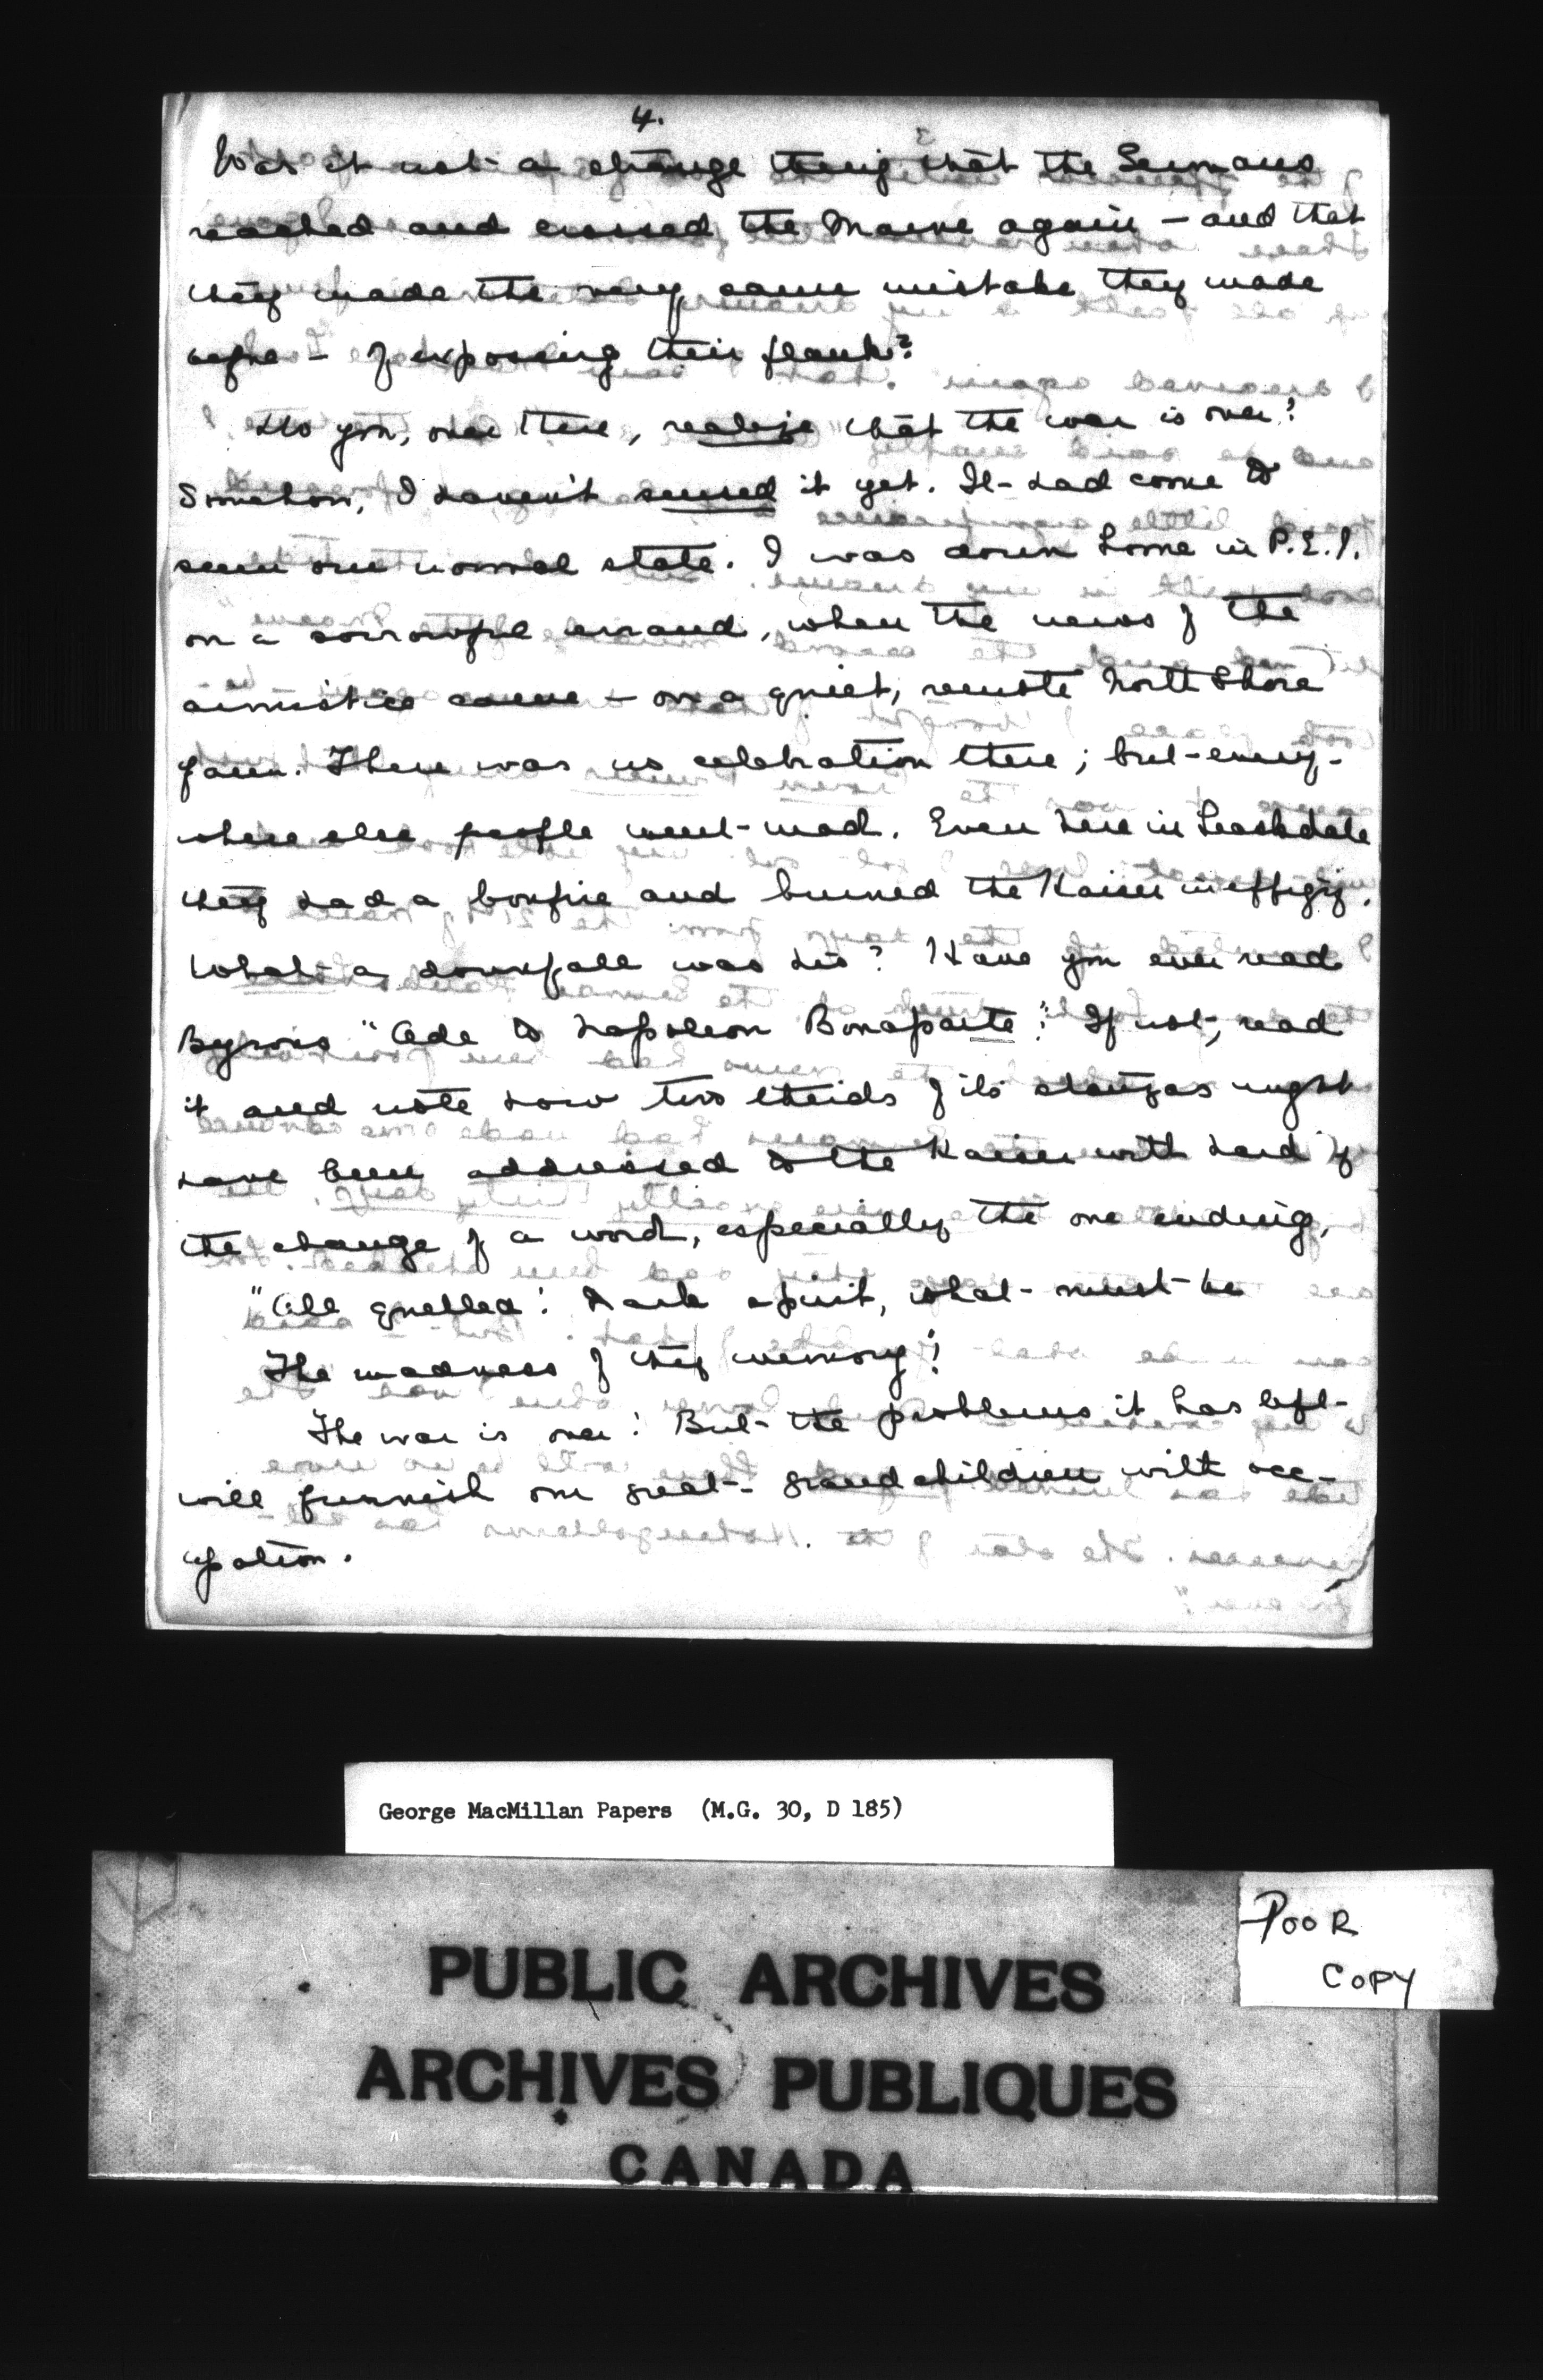 4.
Was it not a strange thing that the Germans
reached and crossed the Marne again – and that
they made the very same mistake they made
before – of exposing their flank?
Do you, over there, realize that the war is over?
Somehow, I haven't sensed it yet. It had come to
seem our normal state. I was down home in P.E.I.
on a sorrowful errand, when the news of the
armistice came – on a quiet, remote North Shore
farm. There was no celebration there; but every-
where else people went mad. Even here in Leaskdale
they had a bonfire and burned the Kaiser in effigy.
What a downfall was his? Have you ever read
Byron's "Ode to Napoleon Bonaparte"? If not, read
it and note how two thirds of its stanzas might
have been addressed to the Kaiser with hardly
the change of a word, especially the one ending,
"All quelled! Dark spirit, what must be
The madness of thy memory!
The war is over! But the problems it has left
will furnish our great-grandchildren with occ-
upation.
George MacMillan Papers (M.G. 30, D 185)
POOR
COPY
PUBLIC ARCHIVES
ARCHIVES PUBLIQUES
CANADA